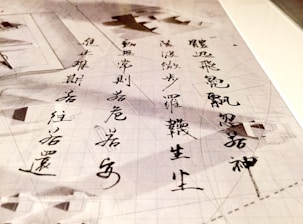 體迅飛鳧飄忽若神
陵波微步羅韈生塵
動無常則若危若安
進止難期若往若還